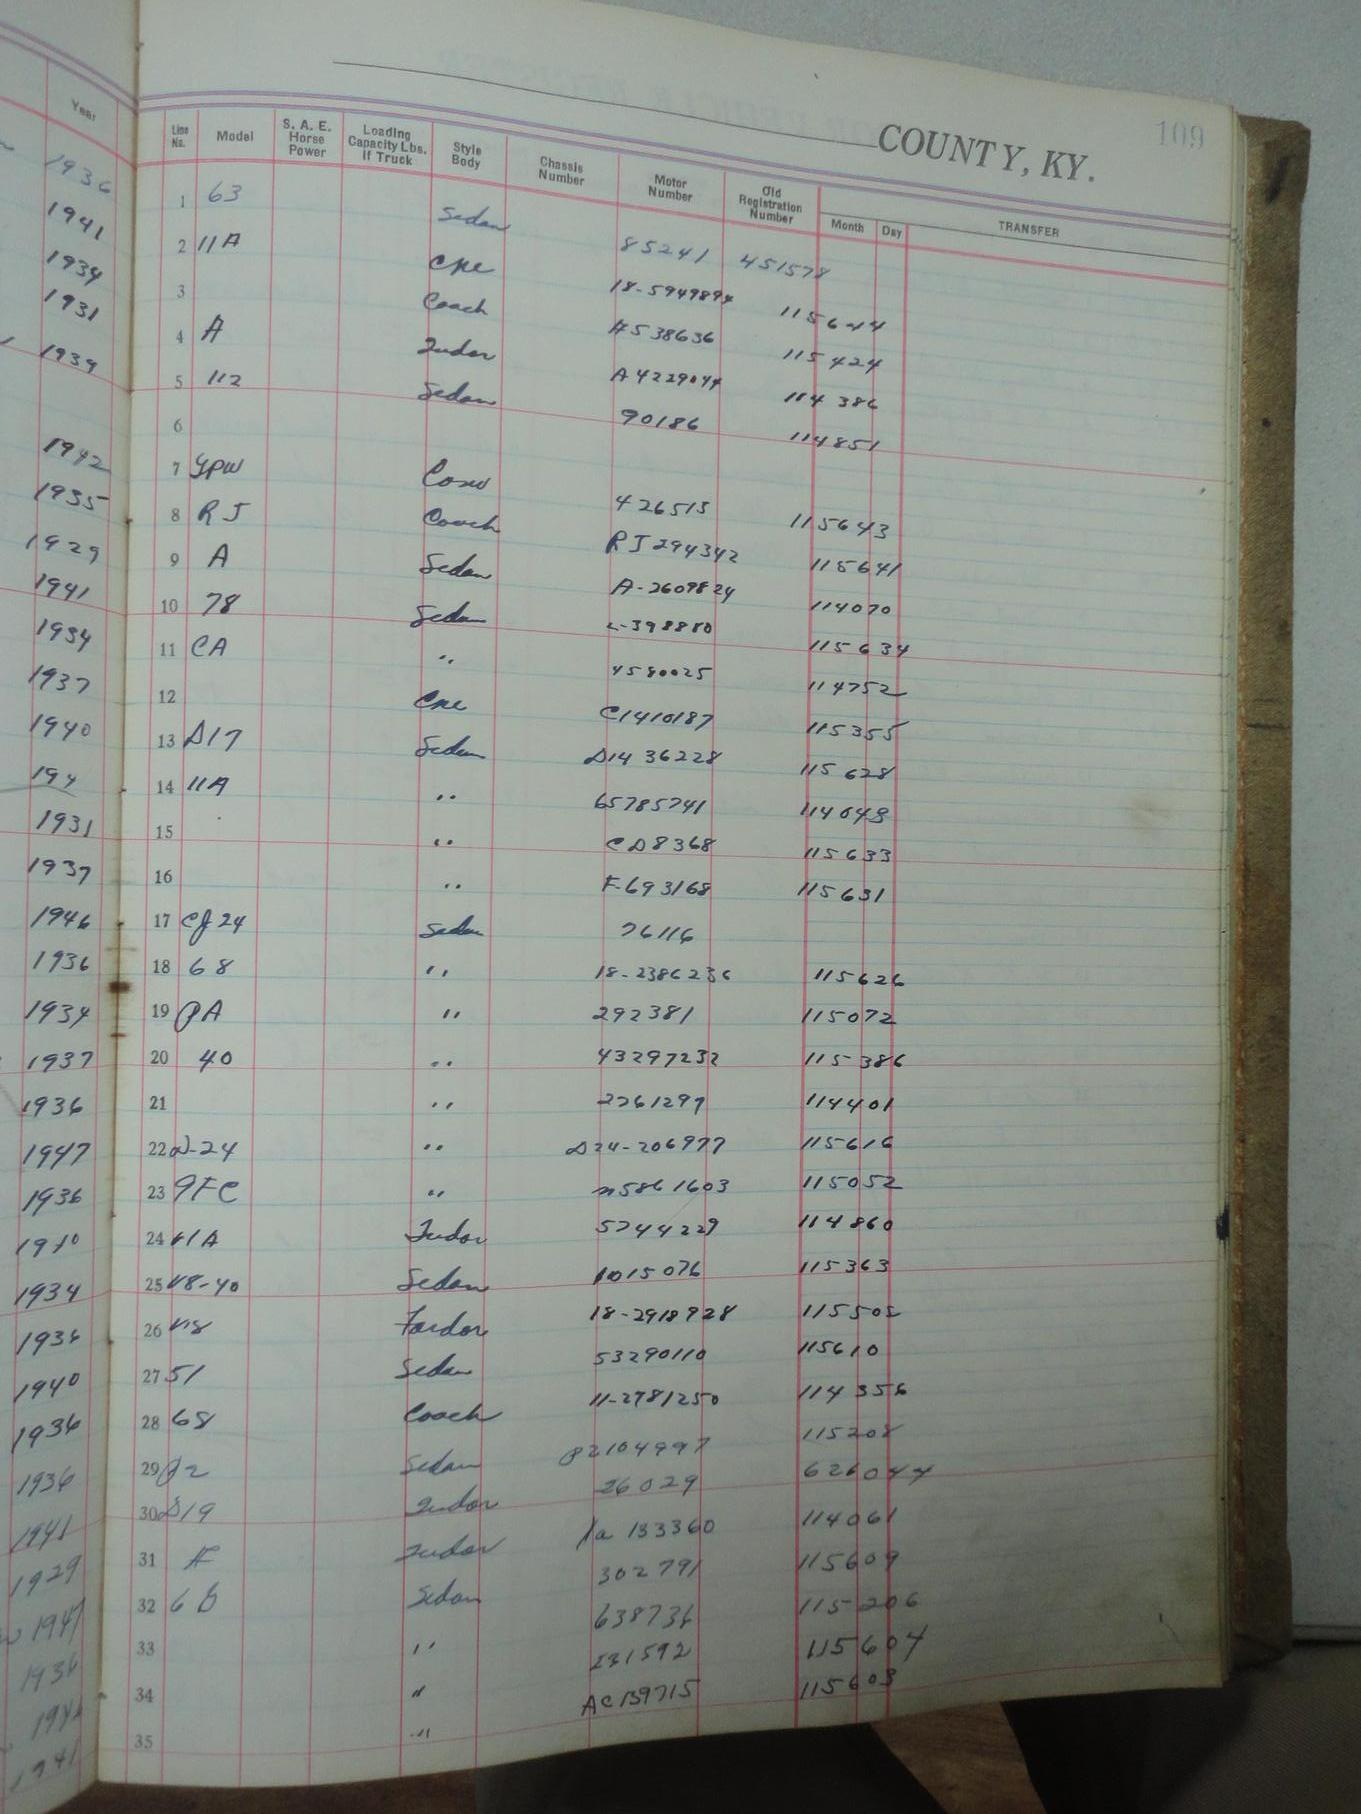 109
COUNTY, KY.
Year
Line No. Model S. A. E. Horse Power Loading Capacity Lbs. If Truck Style Body Chassis Number Motor Number Old Registration Number Month Day TRANSFER
1936 1 63 Sedan 85241 451578
1941 2 11A Cpe 18-5949894 115644
1934 3 Coach A538636 115424
1931 4 A Tudor A4229044 114386
1939 5 112 Sedan 90186 114851
6
1942 7 GPW 426515 115643
1935 8 RJ Coach RJ294342 115641
1929 9 A Sedan A-2609824 114070
1941 10 78 Sedan 115634
1934 11 CA " 4580025 114752
1937 12 Cpe C1410187 115355
1940 13 D17 Sedan D14 36228 115628
194 14 11A " 65785741 114048
1931 15 " CD8368 115633
1937 16 " F-693168 115631
1946 17 CJ24 Sedan 76116
1936 18 68 " 18-2386236 115626
1934 19 PA " 292381 115072
1937 20 40 " 43297232 115386
1936 21 " 2261297 114401
1947 22 D-24 " D24-206977 115616
1936 23 9FC " 5861603 115052
1940 24 11A Tudor 5744229 114860
1934 25 V8-40 Sedan 1015076 115363
1936 26 V8 Fordor 18-2918928 115505
1940 27 51 Sedan 53290110 115610
1936 28 68 Coach 11-2781250 114356
1936 29 P2 Sedan P2104997 115208
1941 30 D19 Tudor 26029 626044
1929 31 A Tudor 133360 114061
1947 32 6 Sedan 302791 115609
1936 33 " 638736 115206
34 " 231592 115604
1941 35 " AC139715 115603